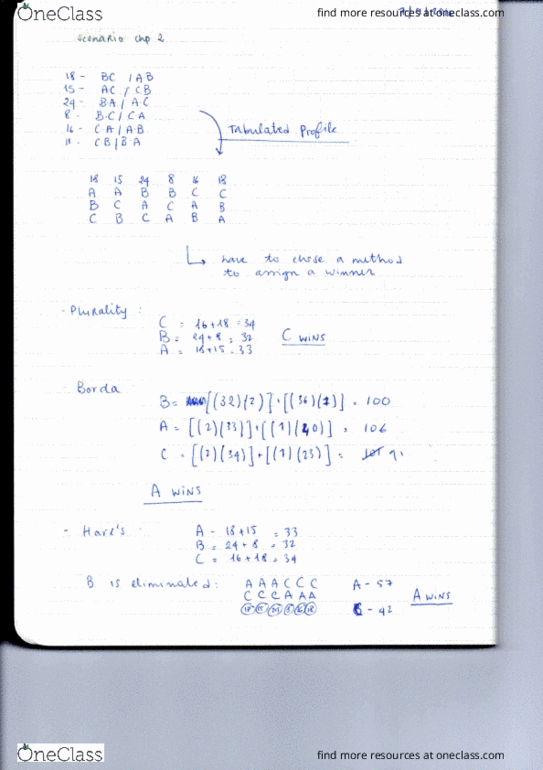 OneClass
find more resources at oneclass.com
Scenario chp 2
18 - BC / AB
15 - AC / CB
24 - BA / AC
8 - B-C / CA
16 - C-A / A-B
CB / BA
Tabulated Profile
18 15 24 8 16 18
A A B B C C
B C A C A B
C B C A B A
have to chose a method
to assign a winner
- Plurality :
C = 16+18 = 34
B = 24+8 = 32
A = 18+15 = 33
C wins
- Borda
B = [(32)(2)] + [(36)(1)] = 100
A = [(2)(33)] + [(1)(40)] = 106
C = [(2)(34)] + [(1)(23)] =
A wins
- Hare's
A - 18+15 = 33
B = 24+8 = 32
C = 16+18 = 34
B is eliminated:
A A A C C C
C C C A A A
A - 57
- 42
A wins
OneClass
find more resources at oneclass.com